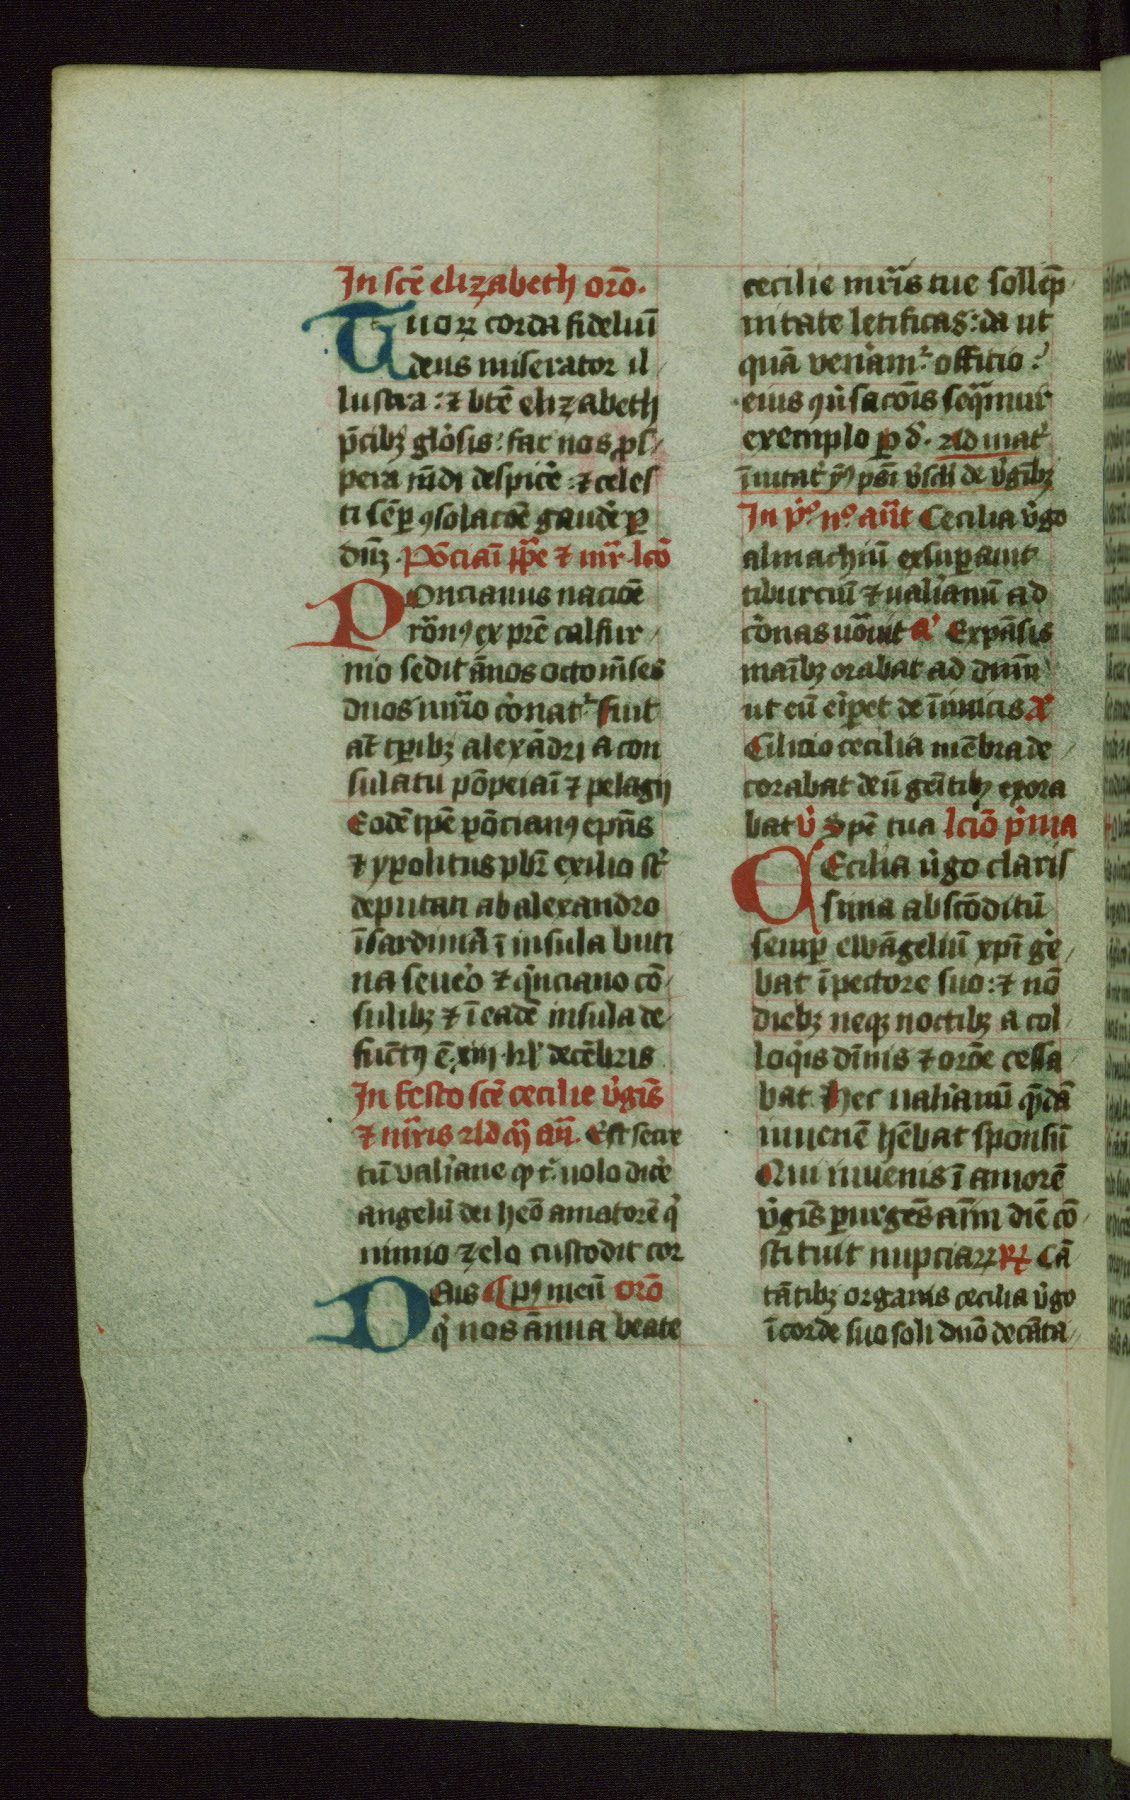 In scē elizabeth orō.
Tuoꝝ corda fideliū
deus miserator il
lustra: ⁊ btē elizabeth
p̄cibꝫ glōsis: fac nos ꝓs
pera mūdi despicẹ̄: ⁊ celes
ti sēꝑ ꝯsolacōe gaudē ꝑ
dnꝫ. Pōciāi ppe ⁊ mr̄. lcō
Poncianus nacōe
rōnꝰ ex pr̄e calfur
nio sedit ānos octo mēses
duos mr̄io cōnatᷣ fuit
at̄ tꝑibꝫ alexādri a con
sulatu pōpeiāi ⁊ pelagij
Eodē tꝑe pōcianꝰ epūs
⁊ ypolitus pbr̄ exilio st̄
deputati ab alexandro
ī sardinia ī insula buci
na seuēo ⁊ qͥnciano cō
sulibꝫ ⁊ ī eadē insula de
fūctꝰ ē. xiij. kl' decēbris
In festo scē cecilie v̓gīs
⁊ mr̄is Ad m̄ an̄. Est secre
tū valīane qd t̓ uolo dicē
angelū dei hēo amatorē qͥ
nimio zelo custodit cor
pꝰ meū orō
Deus
qͥ nos ānua beate
cecilie mr̄is tue sollēp
nitate letificas: da ut
quā venām̄ᷣ officio:
eius ꝯūsacōis seqͣmur
exemplo ꝑ d. Ad mat̓
īuitat̓ ymꝰ psī v̓scli de v̓gībꝫ
In p̓º nº an̄t Cecilia v̓go
almachiū exsuꝑauit
tiburciū ⁊ ualiānū ad
cōnas uōuit a Expāsis
manibꝫ orabat ad dnm̄
ut eū eīꝑet de īimicis a
Cilicio cecilia mēbra de
corabat deū gemitibꝫ exora
bat v̓ Spē tua lciō p̓ma
CEcilia v̓go claris
sima abscōditū
semꝑ ewāgeliū xpī gē
bat ī pectore suo: ⁊ nō
diebꝫ neqꝫ noctibꝫ a col
loqͥis dīnis ⁊ orōe cessa
bat Hec ualiānū qͣdā
iuuenē hēbat sponsū
Qui iuuenis ī amorē
v̓gīs ꝑurgēs aīm diē cō
stituit nupciaꝝ ℟ Cā
tātibꝫ organis cecilia v̓go
ī corde suo soli dnō decāta